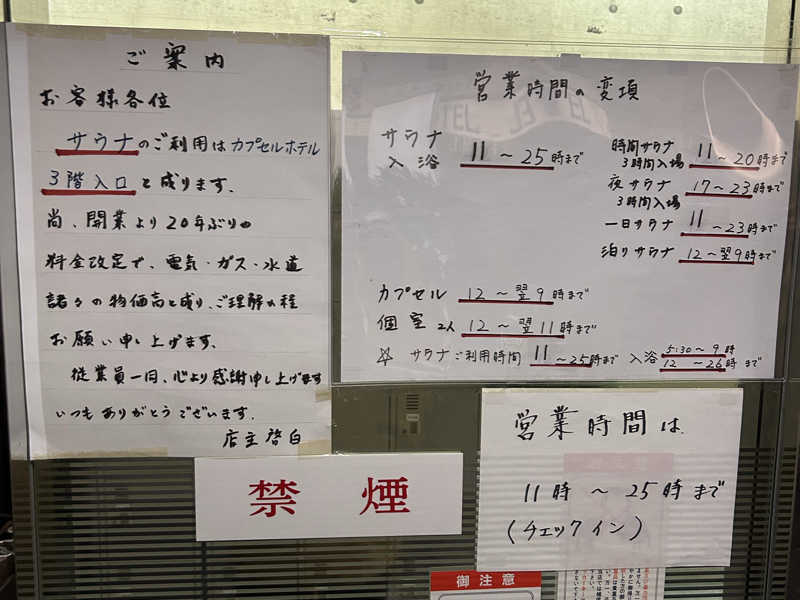 ご案内
お客様各位
サウナのご利用はカプセルホテル
3階入口と成ります.
尚、開業より20年ぶりの
料金改定で、電気・ガス・水道
諸々の物価高と成り、ご理解の程
お願い申し上げます、
従業員一同、心より感謝申し上げます
いつもありがとうございます.
店主啓白
営業時間の変項
サウナ
入浴 11〜25時まで
時間サウナ
3時間入場 11〜20時まで
夜サウナ
3時間入場 17〜23時まで
一日サウナ 11〜23時まで
泊りサウナ 12〜翌9時まで
カプセル 12〜翌9時まで
個室2人 12〜翌11時まで
☆ サウナご利用時間 11〜25時まで 入浴 5:30〜9時
12〜26時まで
営業時間は
11時〜25時まで
(チェックイン)
禁煙
御注意